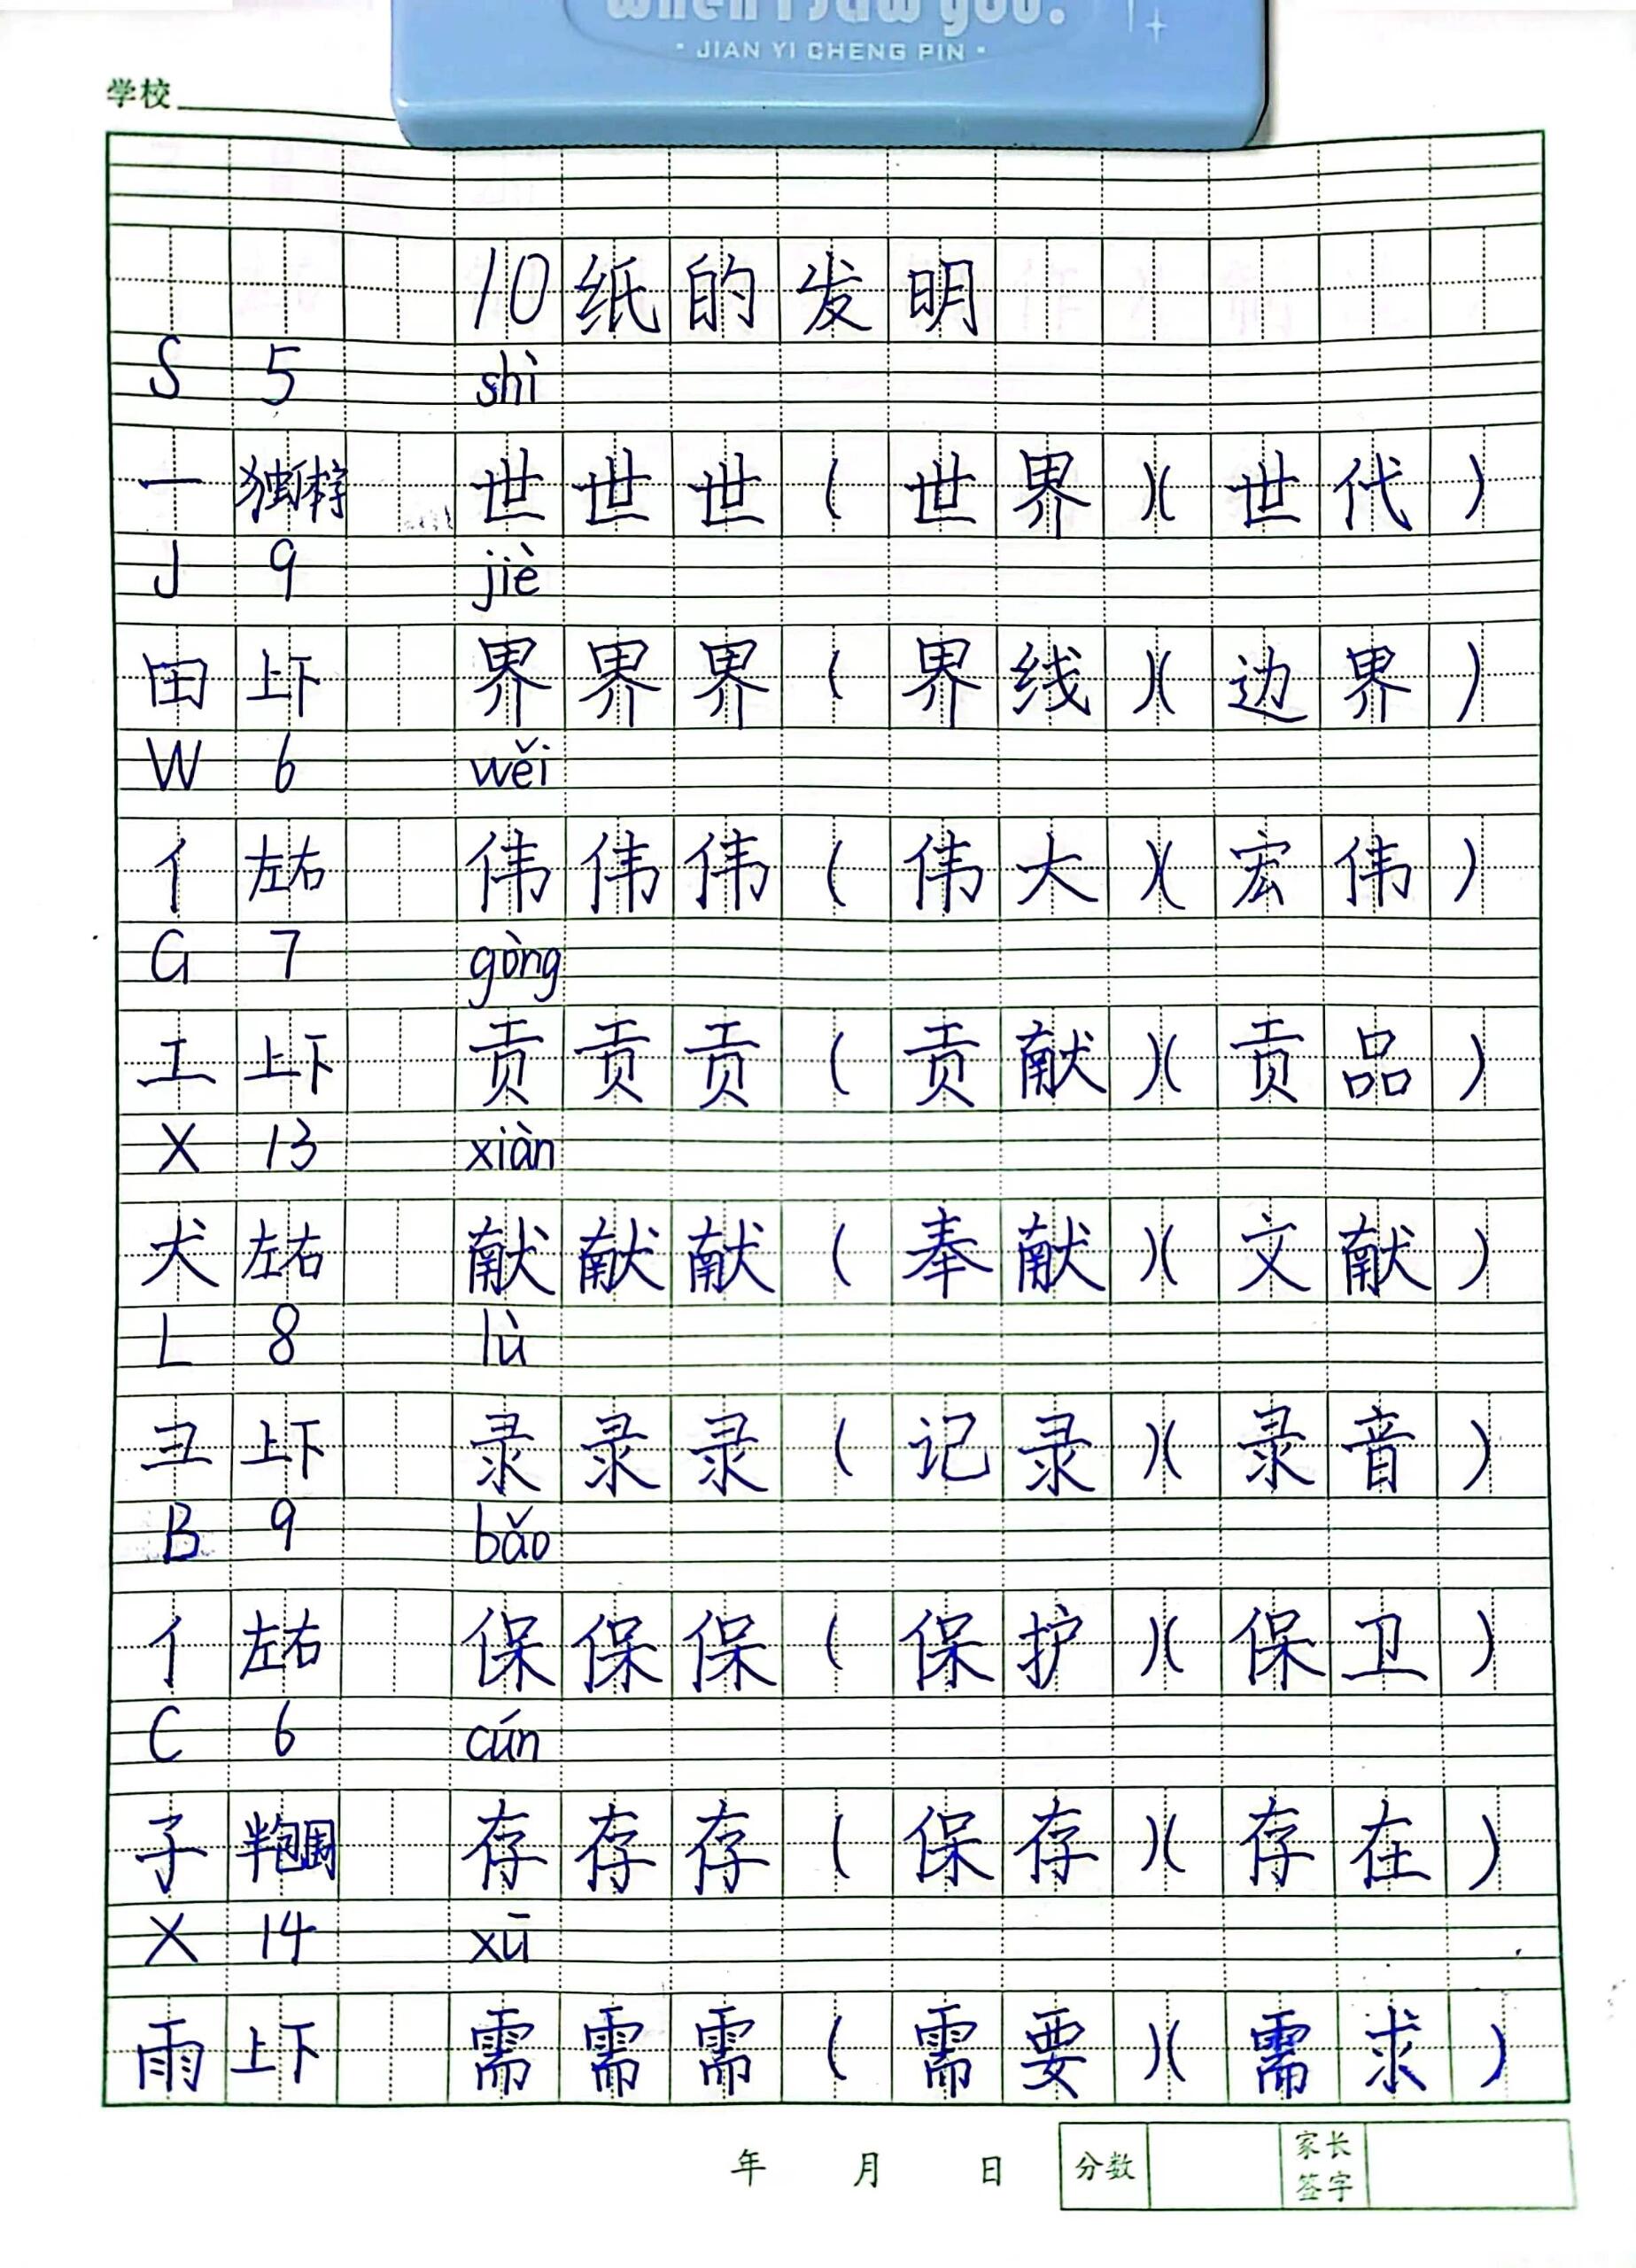 When I saw you.
· JIAN YI CHENG PIN ·
学校
10纸的发明
S 5 shì
一 独体字 世世世(世界)(世代)
J 9 jiè
田 上下 界界界(界线)(边界)
W 6 wěi
亻 左右 伟伟伟(伟大)(宏伟)
G 7 gòng
工 上下 贡贡贡(贡献)(贡品)
X 13 xiàn
犬 左右 献献献(奉献)(文献)
L 8 lù
彐 上下 录录录(记录)(录音)
B 9 bǎo
亻 左右 保保保(保护)(保卫)
C 6 cún
子 半包围 存存存(保存)(存在)
X 14 xū
雨 上下 需需需(需要)(需求)
年 月 日 分数 家长签字